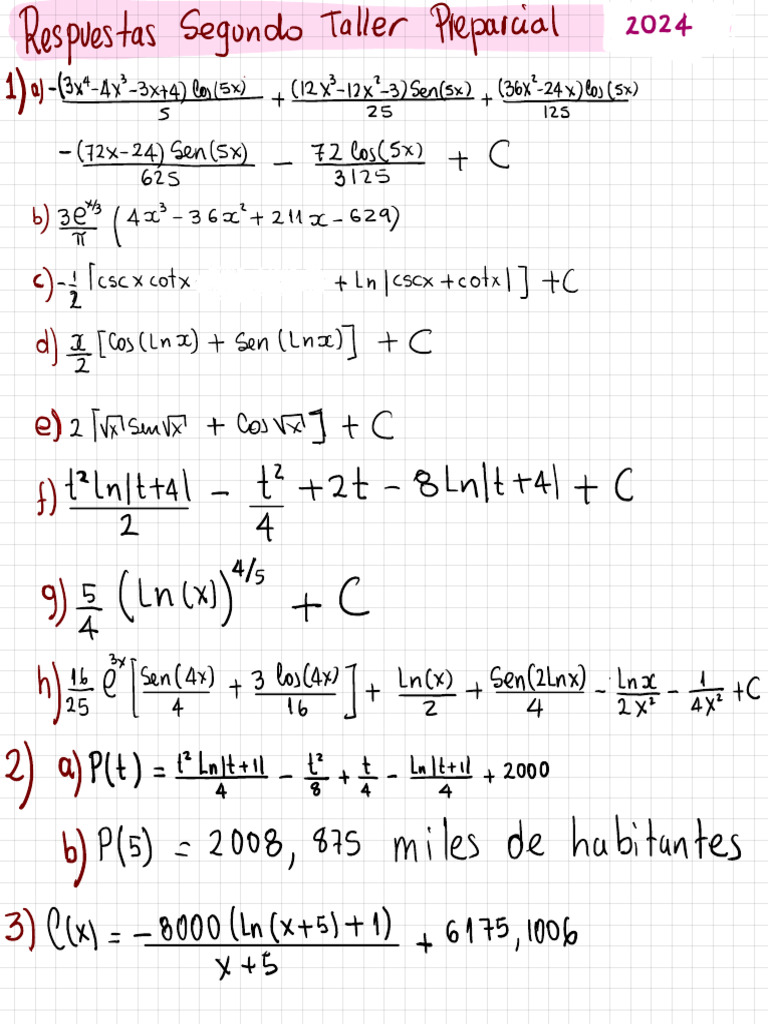 Respuestas Segundo Taller Preparcial 2024
1) a) -(3x⁴-4x³-3x+4) Cos(5x)/5 + (12x³-12x²-3) Sen(5x)/25 + (36x²-24x) Cos(5x)/125
-(72x-24) Sen(5x)/625 - 72 Cos(5x)/3125 + C
b) 3e^(x/3)/π (4x³-36x²+211x-629)
c) -1/2 [cscx cotx + Ln|cscx+cotx|] + C
d) x/2 [Cos(Lnx) + Sen(Lnx)] + C
e) 2 [√x Sen√x + Cos√x] + C
f) t² ln|t+4|/2 - t²/4 + 2t - 8Ln|t+4| + C
g) 5/4 (Ln(x))^(4/5) + C
h) 16/25 e^(3x) [Sen(4x)/4 + 3 Cos(4x)/16] + Ln(x)/2 + Sen(2Lnx)/4 - Lnx/2x² - 1/4x² + C
2) a) P(t) = t² Ln|t+1|/4 - t²/8 + t/4 - Ln|t+1|/4 + 2000
b) P(5) = 2008,875 miles de habitantes
3) C(x) = -8000 (Ln(x+5)+1)/x+5 + 6175,1006